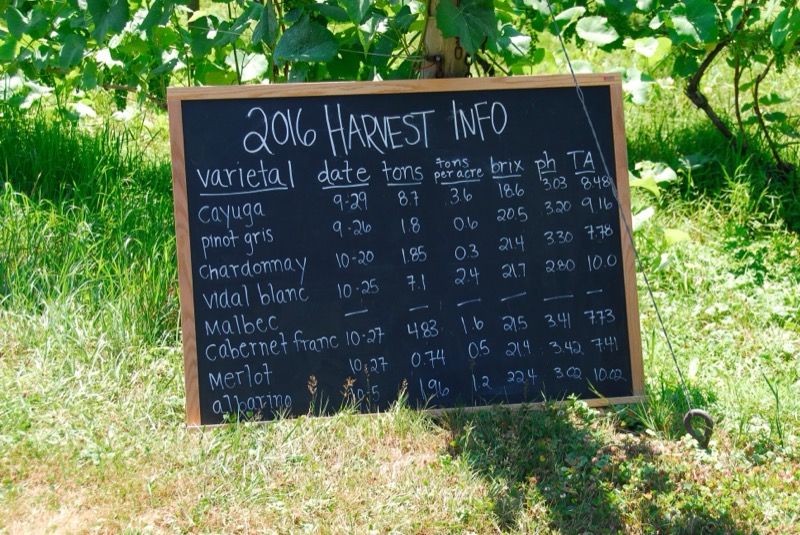 2016 HARVEST INFO
varietal date tons tons per acre brix ph TA
cayuga 9-29 8.7 3.6 18.6 3.03 8.48
pinot gris 9-26 1.8 0.6 20.5 3.20 9.16
chardonnay 10-20 1.85 0.3 21.4 3.30 7.78
vidal blanc 10-25 7.1 2.4 21.7 2.80 10.0
Malbec — — — — — —
Cabernet franc 10-27 4.83 1.6 21.5 3.41 7.73
Merlot 10-27 0.74 0.5 21.4 3.42 7.41
albarino 1.96 1.2 22.4 3.02 10.02